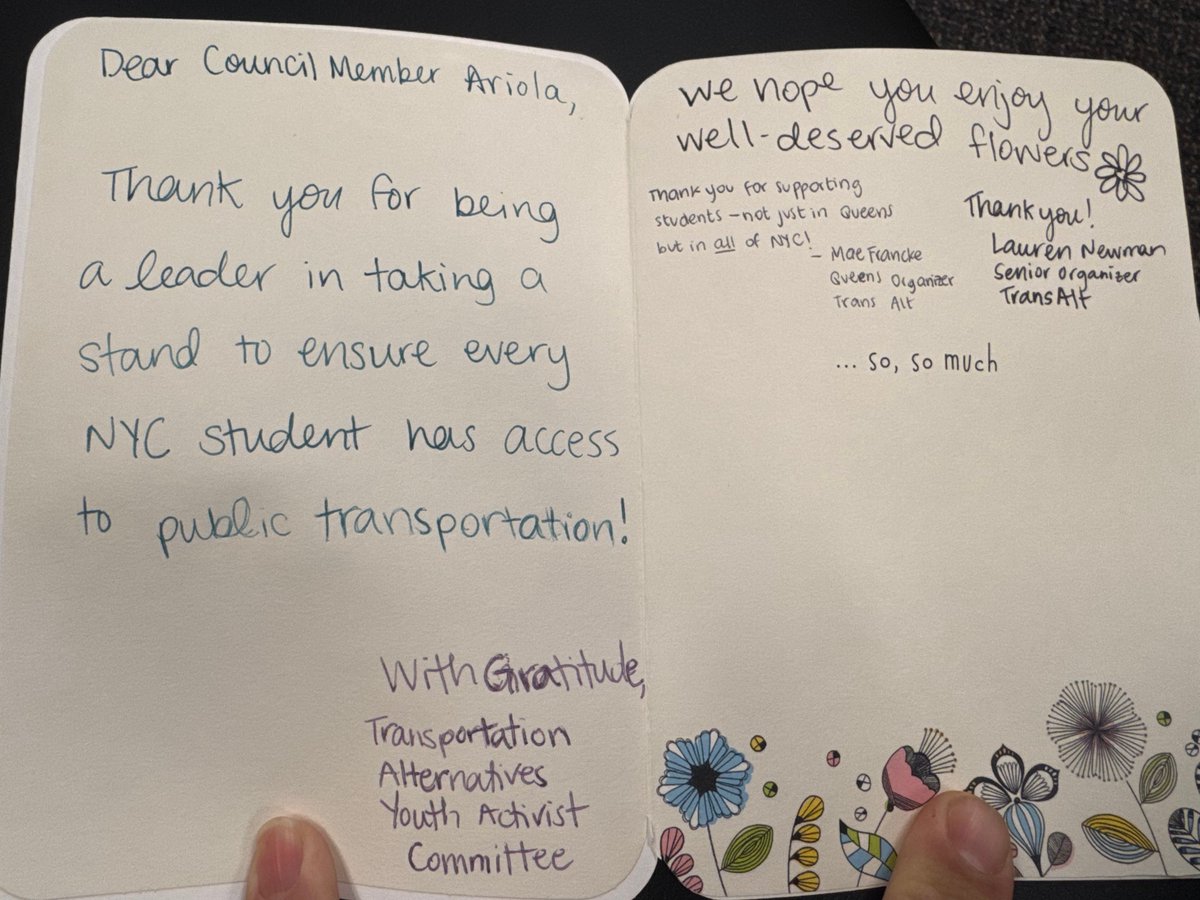 Dear Council Member Ariola,
Thank you for being
a leader in taking a
stand to ensure every
NYC student has access
to public transportation!
With Gratitude,
Transportation
Alternatives
Youth Activist
Committee
we hope you enjoy your
well-deserved flowers
Thank you for supporting
students - not just in Queens
but in all of NYC!
- Mae Francke
Queens Organizer
Trans Alt
Thank you!
Lauren Newman
Senior Organizer
TransAlt
... so, so much